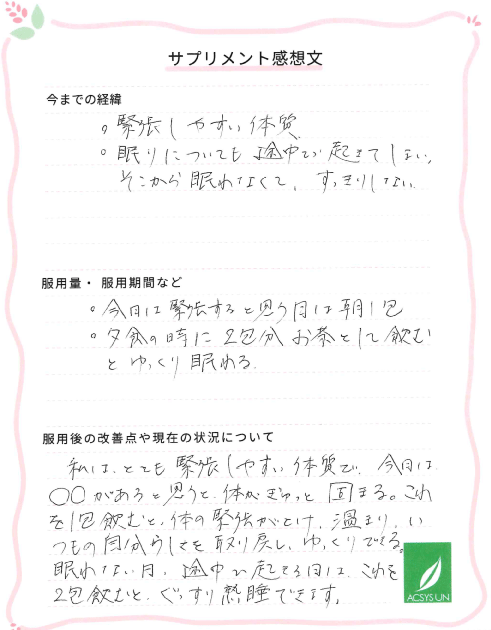 サプリメント感想文
今までの経緯
。緊張しやすい体質
。眠りについても途中で起きてしまい、
そこから眠れなくて、すっきりしない
服用量・ 服用期間など
。今日は緊張すると思う日は朝1包
。夕食の時に2包分お茶として飲む
とゆっくり眠れる。
服用後の改善点や現在の状況について
私は、とても緊張しやすい体質で、今日は
〇〇があると思うと、体がぎゅっと固まる。これ
を1包飲むと、体の緊張がとけ、温まり、い
つもの自分らしさを取り戻し、ゆっくりできる。
眠れない日、途中で起きる日は、これを
2包飲むと、ぐっすり熟睡できます。
ACSYS UN